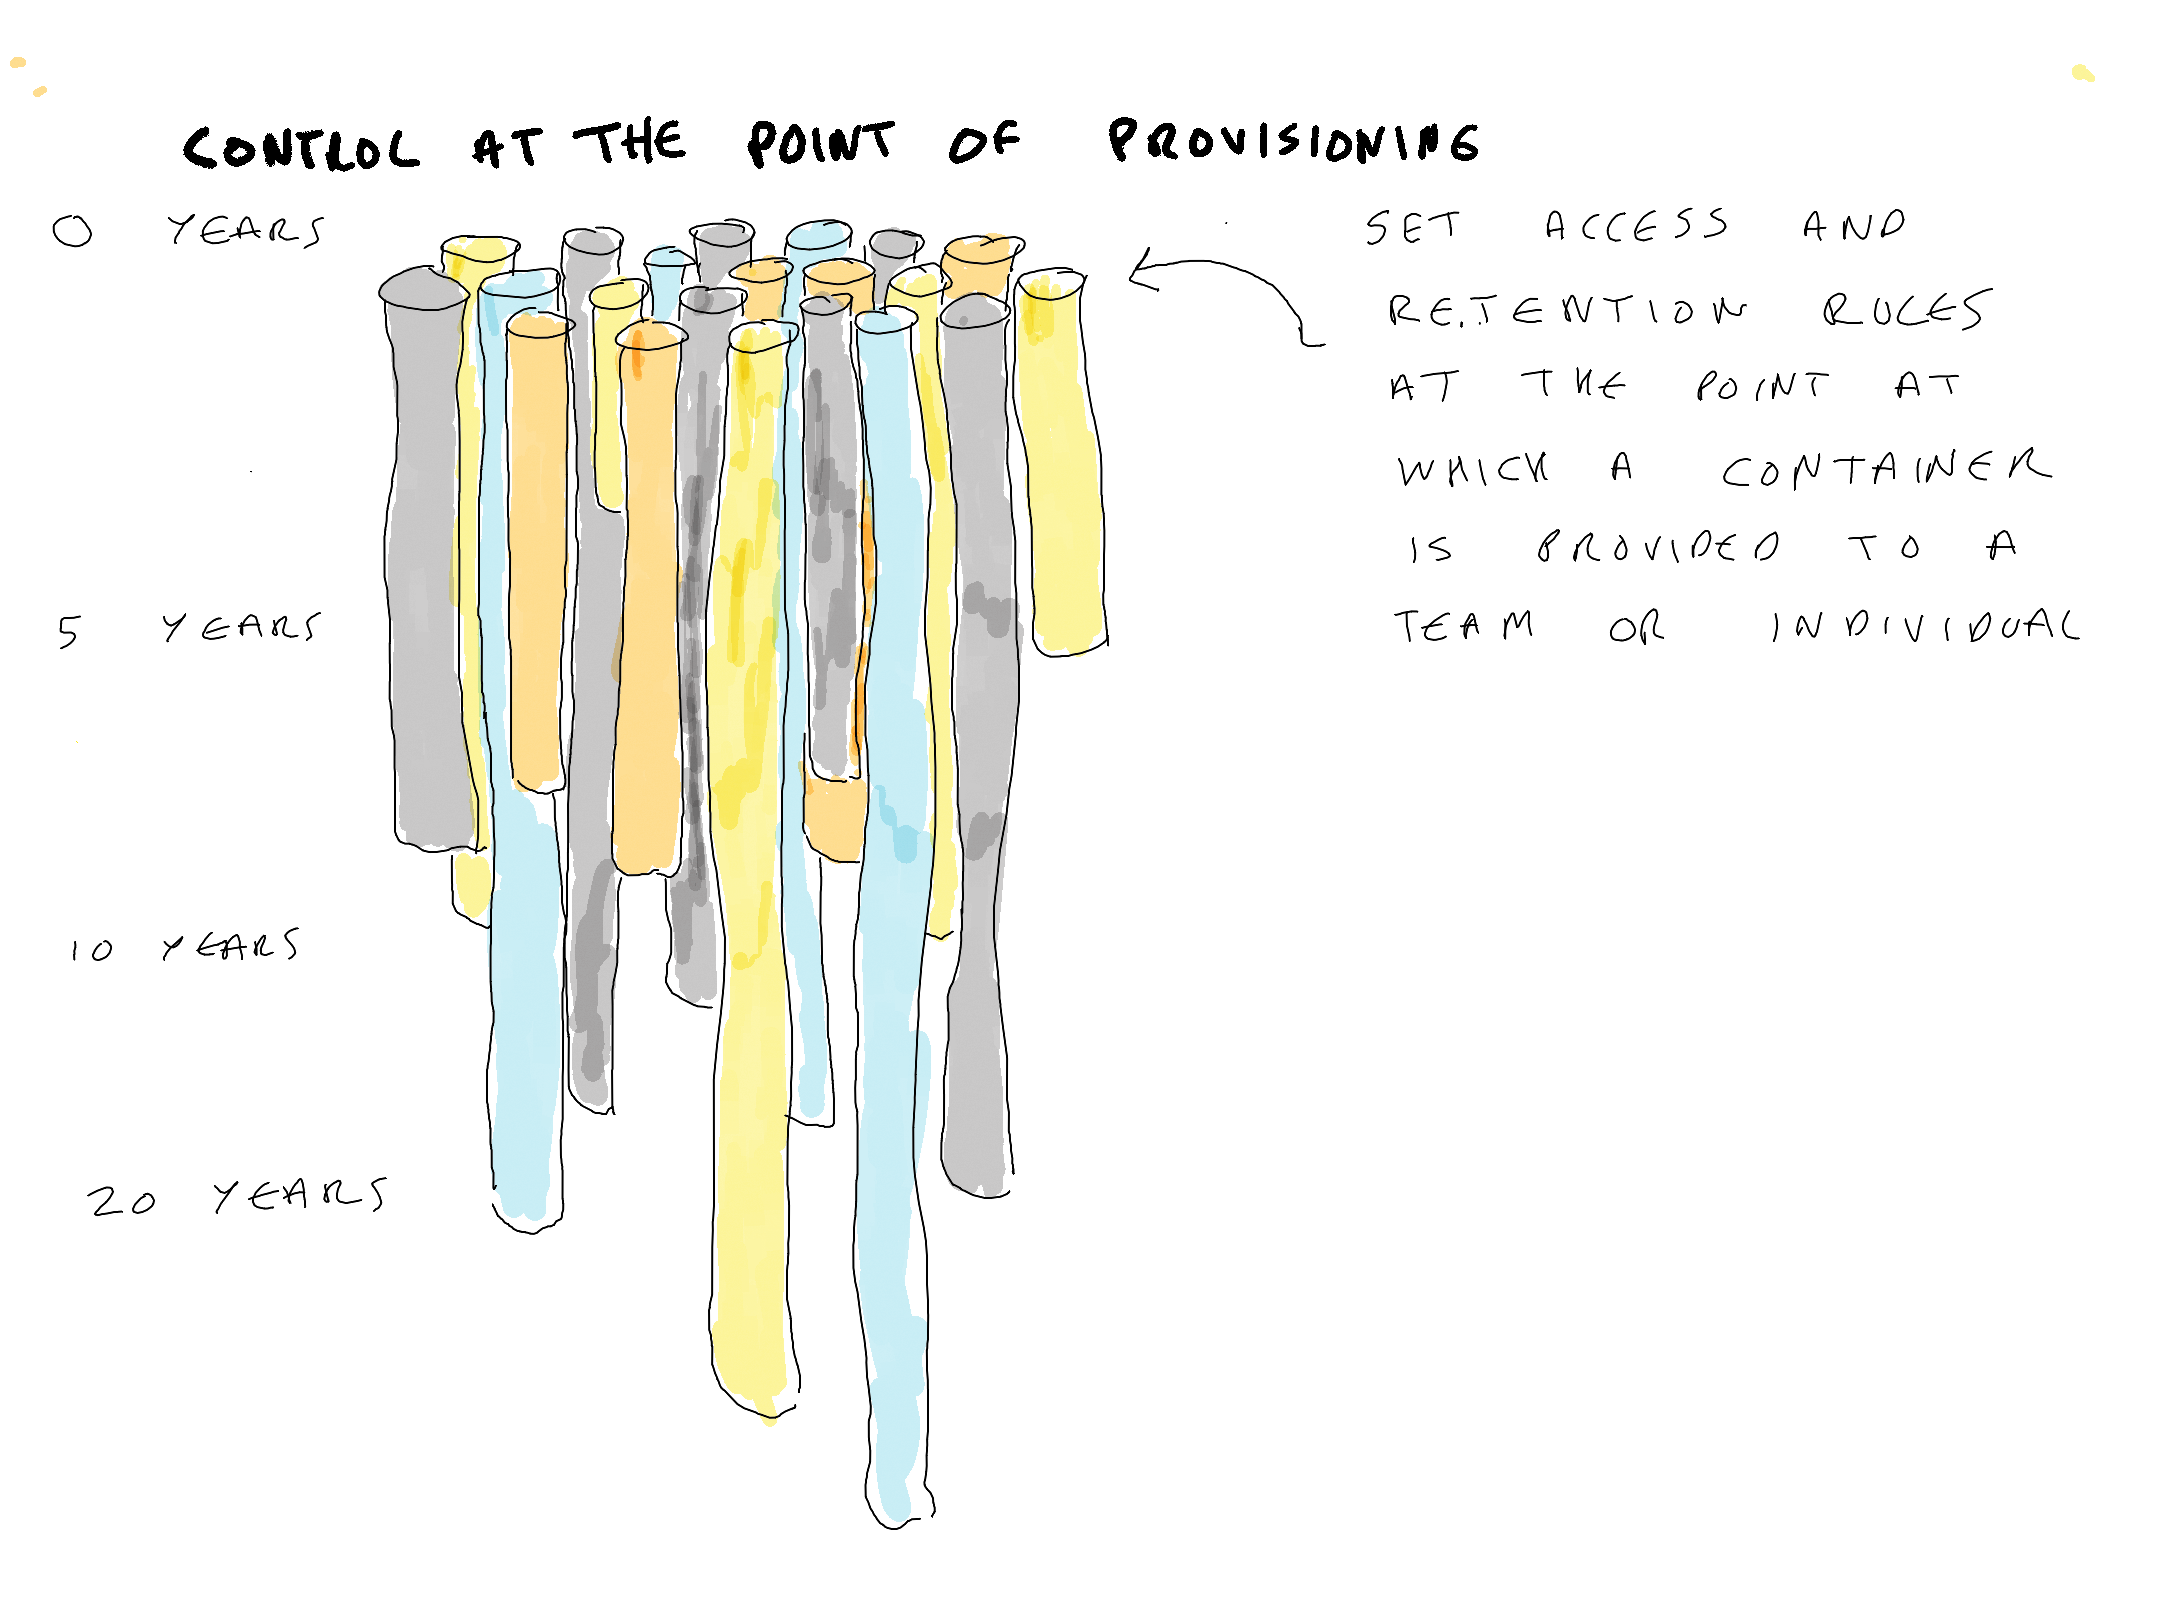 CONTROL AT THE POINT OF PROVISIONING
0 YEARS
SET ACCESS AND
RETENTION RULES
AT THE POINT AT
WHICH A CONTAINER
IS PROVIDED TO A
TEAM OR INDIVIDUAL
5 YEARS
10 YEARS
20 YEARS